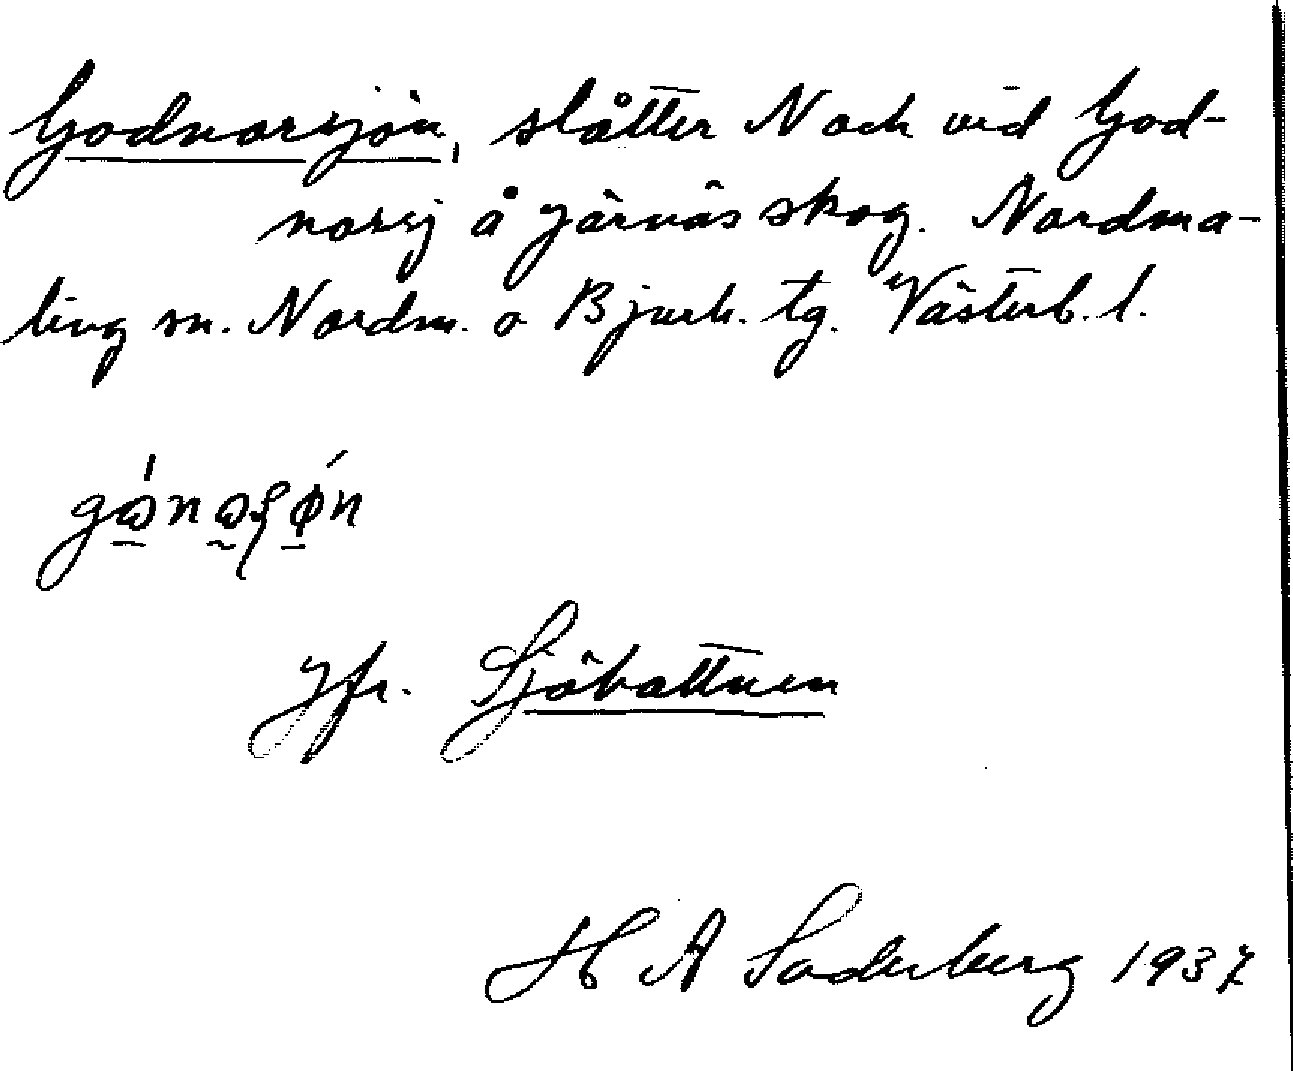 Godnorsjön, slåtter N och vid God-
norsj å Järnäs skog. Nordma-
ling sn. Nordm. o Bjurh. tg. Västerb. l.
Jfr. Sjöbottnen
H A Söderberg 1937